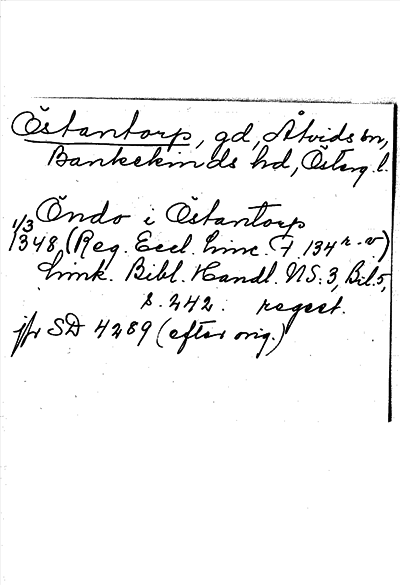 Östantorp, gd, Åtvids sn,
Bankekinds hd, Österg. l.
Öndo i Östantorp
1/3
1348, (Reg. Eccl. Linc. F. 134 r.-v.)
Link. Bibl. Handl. NS. 3, Bil. 5,
s. 242. regest.
jfr SD 4289 (efter orig.)